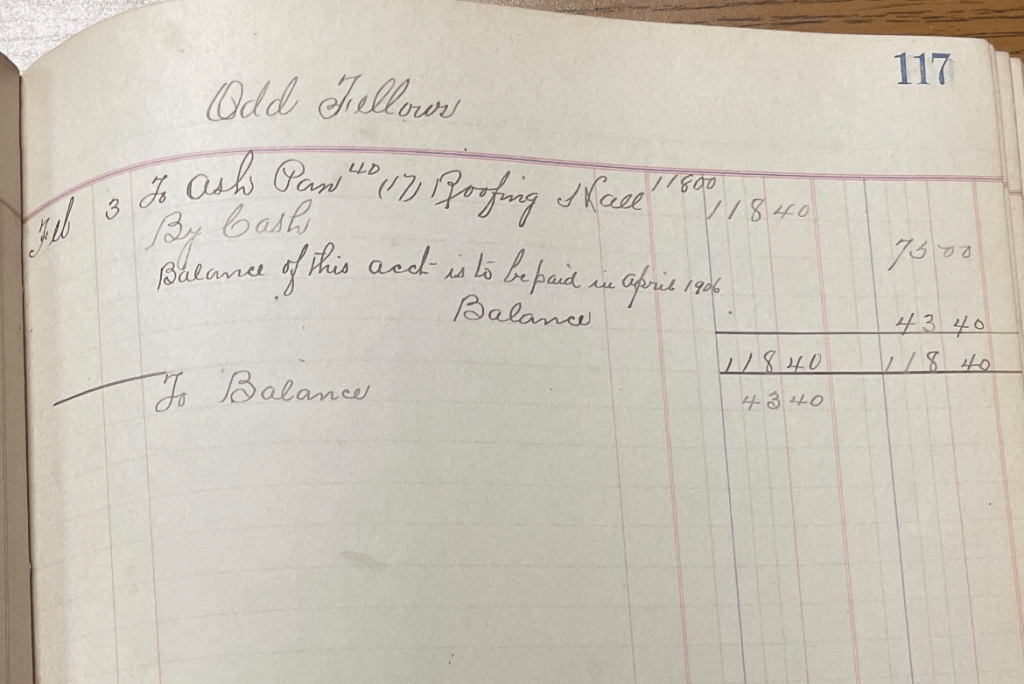 117
Odd Fellows
Feb 3 To Ash Pan 40 (17) Roofing Hall 11800 11840
By Cash 7500
Balance of this acct is to be paid in April 1906
Balance 43 40
11840 118 40
To Balance 4340